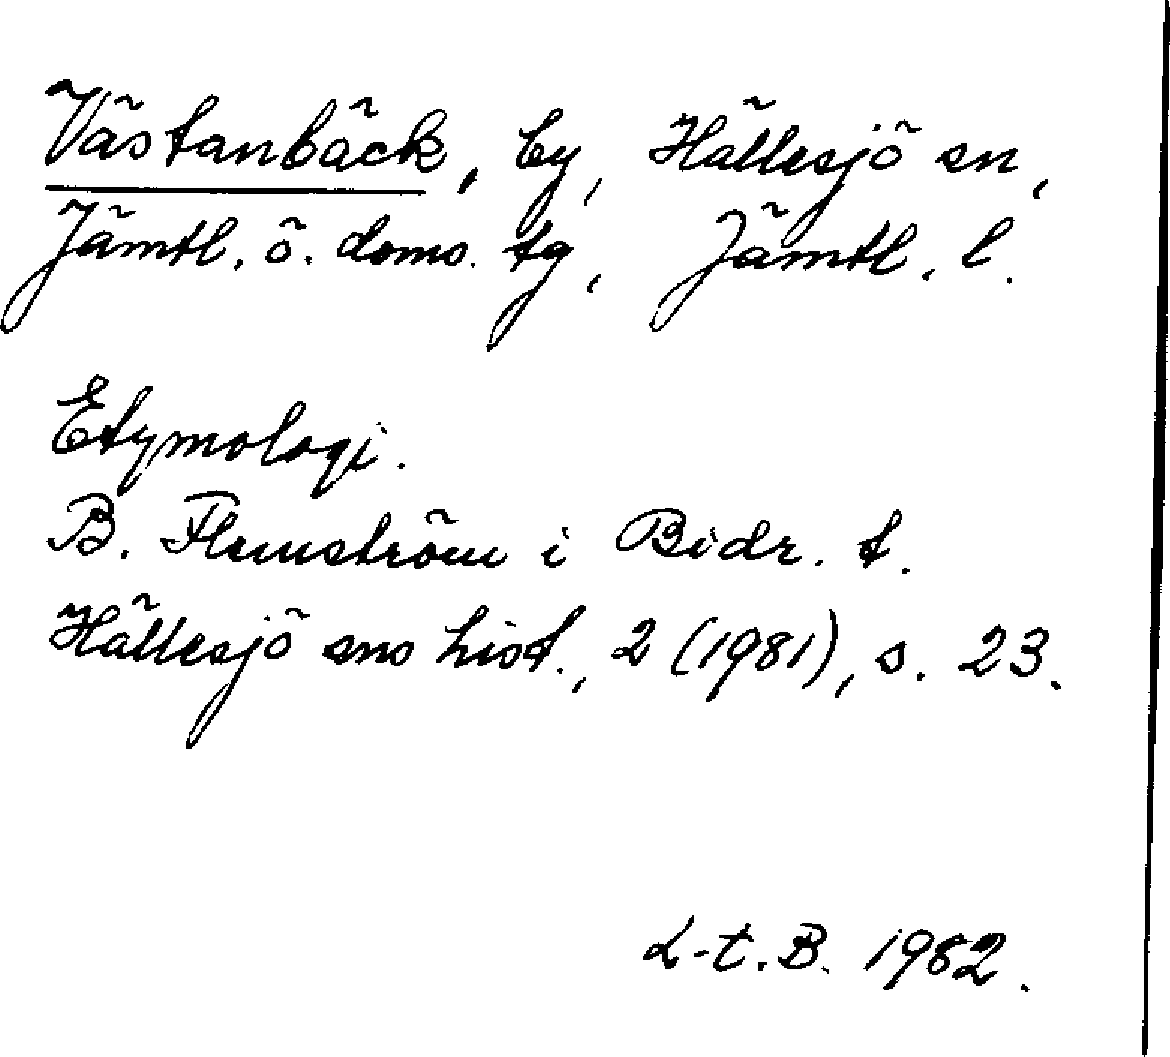 Västanbäck, by, Hällesjö sn,
Jämtl. ö. doms. tg, Jämtl. l.
Etymologi.
B. Flemström i Bidr. t.
Hällesjö sns hist., 2 (1981), s. 23.
L-t. B. 1982.